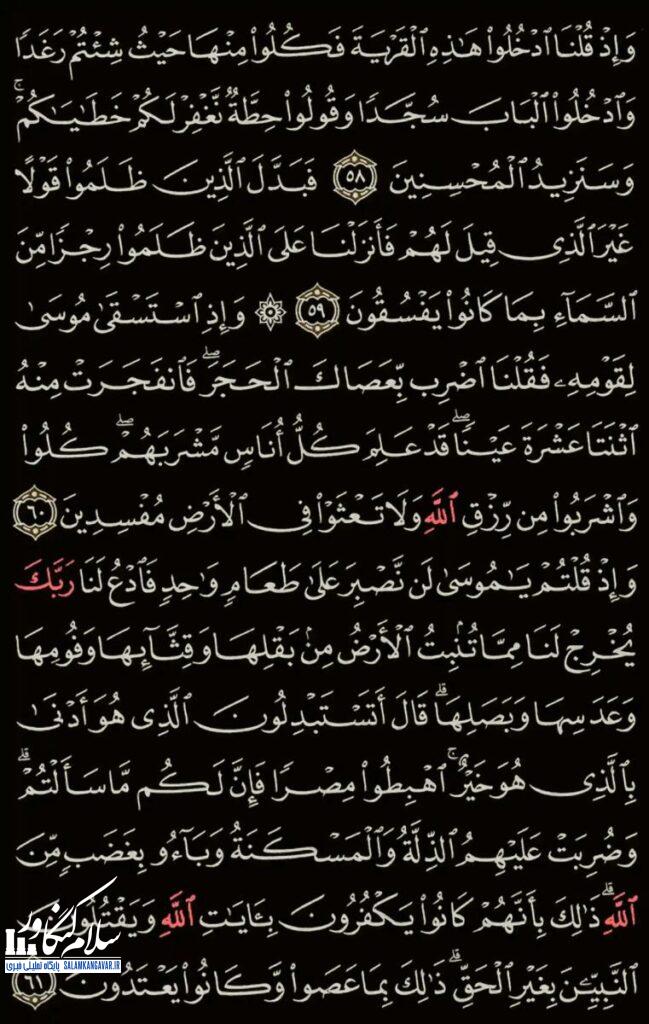 وَإِذْ قُلْنَا ٱدْخُلُوا۟ هَٰذِهِ ٱلْقَرْيَةَ فَكُلُوا۟ مِنْهَا حَيْثُ شِئْتُمْ رَغَدًا
وَٱدْخُلُوا۟ ٱلْبَابَ سُجَّدًا وَقُولُوا۟ حِطَّةٌ نَّغْفِرْ لَكُمْ خَطَٰيَٰكُمْ ۚ
وَسَنَزِيدُ ٱلْمُحْسِنِينَ ٥٨ فَبَدَّلَ ٱلَّذِينَ ظَلَمُوا۟ قَوْلًا
غَيْرَ ٱلَّذِى قِيلَ لَهُمْ فَأَنزَلْنَا عَلَى ٱلَّذِينَ ظَلَمُوا۟ رِجْزًا مِّنَ
ٱلسَّمَآءِ بِمَا كَانُوا۟ يَفْسُقُونَ ٥٩ ۞ وَإِذِ ٱسْتَسْقَىٰ مُوسَىٰ
لِقَوْمِهِۦ فَقُلْنَا ٱضْرِب بِّعَصَاكَ ٱلْحَجَرَ ۖ فَٱنفَجَرَتْ مِنْهُ
ٱثْنَتَا عَشْرَةَ عَيْنًا ۖ قَدْ عَلِمَ كُلُّ أُنَاسٍ مَّشْرَبَهُمْ ۖ كُلُوا۟
وَٱشْرَبُوا۟ مِن رِّزْقِ ٱللَّهِ وَلَا تَعْثَوْا۟ فِى ٱلْأَرْضِ مُفْسِدِينَ ٦٠
وَإِذْ قُلْتُمْ يَٰمُوسَىٰ لَن نَّصْبِرَ عَلَىٰ طَعَامٍ وَٰحِدٍ فَٱدْعُ لَنَا رَبَّكَ
يُخْرِجْ لَنَا مِمَّا تُنۢبِتُ ٱلْأَرْضُ مِنۢ بَقْلِهَا وَقِثَّآئِهَا وَفُومِهَا
وَعَدَسِهَا وَبَصَلِهَا ۖ قَالَ أَتَسْتَبْدِلُونَ ٱلَّذِى هُوَ أَدْنَىٰ
بِٱلَّذِى هُوَ خَيْرٌ ۚ ٱهْبِطُوا۟ مِصْرًا فَإِنَّ لَكُم مَّا سَأَلْتُمْ ۗ
وَضُرِبَتْ عَلَيْهِمُ ٱلذِّلَّةُ وَٱلْمَسْكَنَةُ وَبَآءُو بِغَضَبٍ مِّنَ
ٱللَّهِ ۗ ذَٰلِكَ بِأَنَّهُمْ كَانُوا۟ يَكْفُرُونَ بِـَٔايَٰتِ ٱللَّهِ وَيَقْتُلُونَ
ٱلنَّبِيِّـۧنَ بِغَيْرِ ٱلْحَقِّ ۗ ذَٰلِكَ بِمَا عَصَوا۟ وَّكَانُوا۟ يَعْتَدُونَ ٦١
سلام کنگاور
پایگاه تحلیلی خبری SALAMKANGAVAR.IR